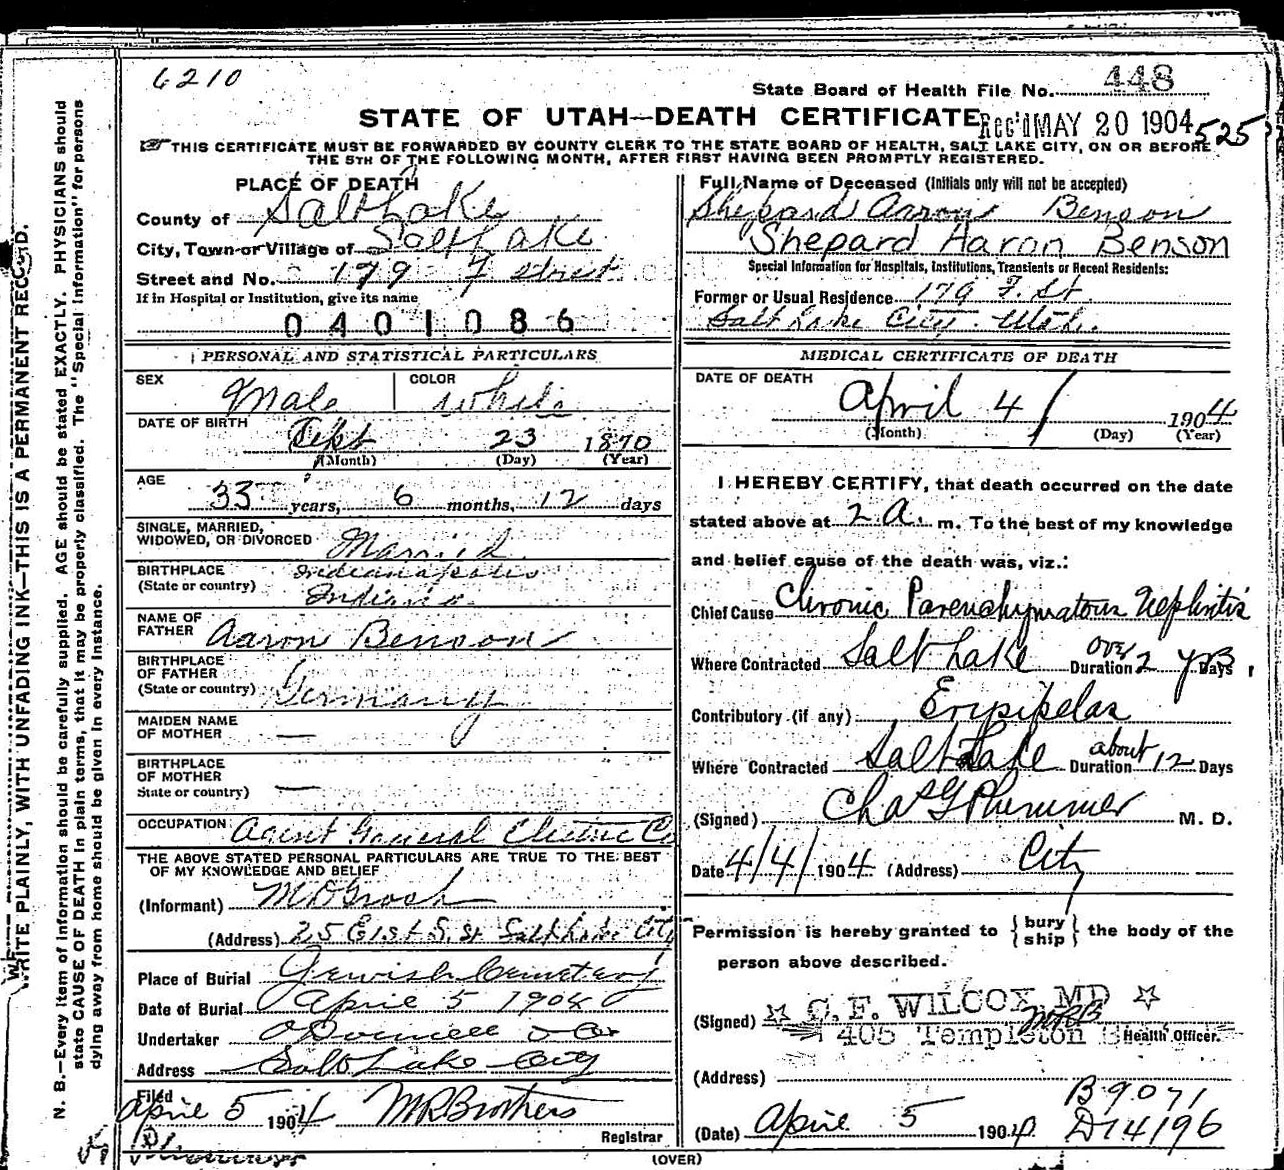 6210
State Board of Health File No. 448
STATE OF UTAH—DEATH CERTIFICATE
Rec'd MAY 20 1904
525
THIS CERTIFICATE MUST BE FORWARDED BY COUNTY CLERK TO THE STATE BOARD OF HEALTH, SALT LAKE CITY, ON OR BEFORE
THE 5TH OF THE FOLLOWING MONTH, AFTER FIRST HAVING BEEN PROMPTLY REGISTERED.
WRITE PLAINLY, WITH UNFADING INK—THIS IS A PERMANENT RECORD.
N. B.—Every item of information should be carefully supplied. AGE should be stated EXACTLY. PHYSICIANS should
state CAUSE OF DEATH in plain terms, that it may be properly classified. The "Special Information" for persons
dying away from home should be given in every instance.
PLACE OF DEATH
County of Salt Lake
City, Town or Village of Salt Lake
Street and No. 179 F Street
If in Hospital or Institution, give its name
0401086
PERSONAL AND STATISTICAL PARTICULARS
SEX Male
COLOR White
DATE OF BIRTH
Sept 23 1870
(Month) (Day) (Year)
AGE
33 years, 6 months, 12 days
SINGLE, MARRIED,
WIDOWED, OR DIVORCED Married
BIRTHPLACE Indianapolis
(State or country) Indiana
NAME OF
FATHER Aaron Benson
BIRTHPLACE
OF FATHER
(State or country) Germany
MAIDEN NAME
OF MOTHER —
BIRTHPLACE
OF MOTHER
State or country) —
OCCUPATION Agent General Electric Co
THE ABOVE STATED PERSONAL PARTICULARS ARE TRUE TO THE BEST
OF MY KNOWLEDGE AND BELIEF
(Informant)
(Address) 25 E 1st S. St Salt Lake City
Place of Burial Jewish Cemetery
Date of Burial April 5 1904
Undertaker O'Donnell & Co
Address Salt Lake City
Filed
April 5 1904 M R Brothers
Registrar
Full Name of Deceased (Initials only will not be accepted)
Shepard Aaron Benson
Shepard Aaron Benson
Special Information for Hospitals, Institutions, Transients or Recent Residents:
Former or Usual Residence 179 F. St
Salt Lake City. Utah.
MEDICAL CERTIFICATE OF DEATH
DATE OF DEATH
April 4 / 1904
(Month) (Day) (Year)
I HEREBY CERTIFY, that death occurred on the date
stated above at 2 A. m. To the best of my knowledge
and belief cause of the death was, viz.:
Chief Cause Chronic Parenchymatous Nephritis
Where Contracted Salt Lake Duration over 2 yrs Days
Contributory (if any) Erisipelas
Where Contracted Salt Lake Duration about 12 Days
(Signed) Chas G Plummer M. D.
Date 4/4/1904 (Address) City
Permission is hereby granted to { bury ship } the body of the
person above described.
(Signed) C. F. WILCOX, MD
MRB
405 Templeton Health Officer.
(Address)
B 9071
(Date) April 5 1904 D 14196
(OVER)